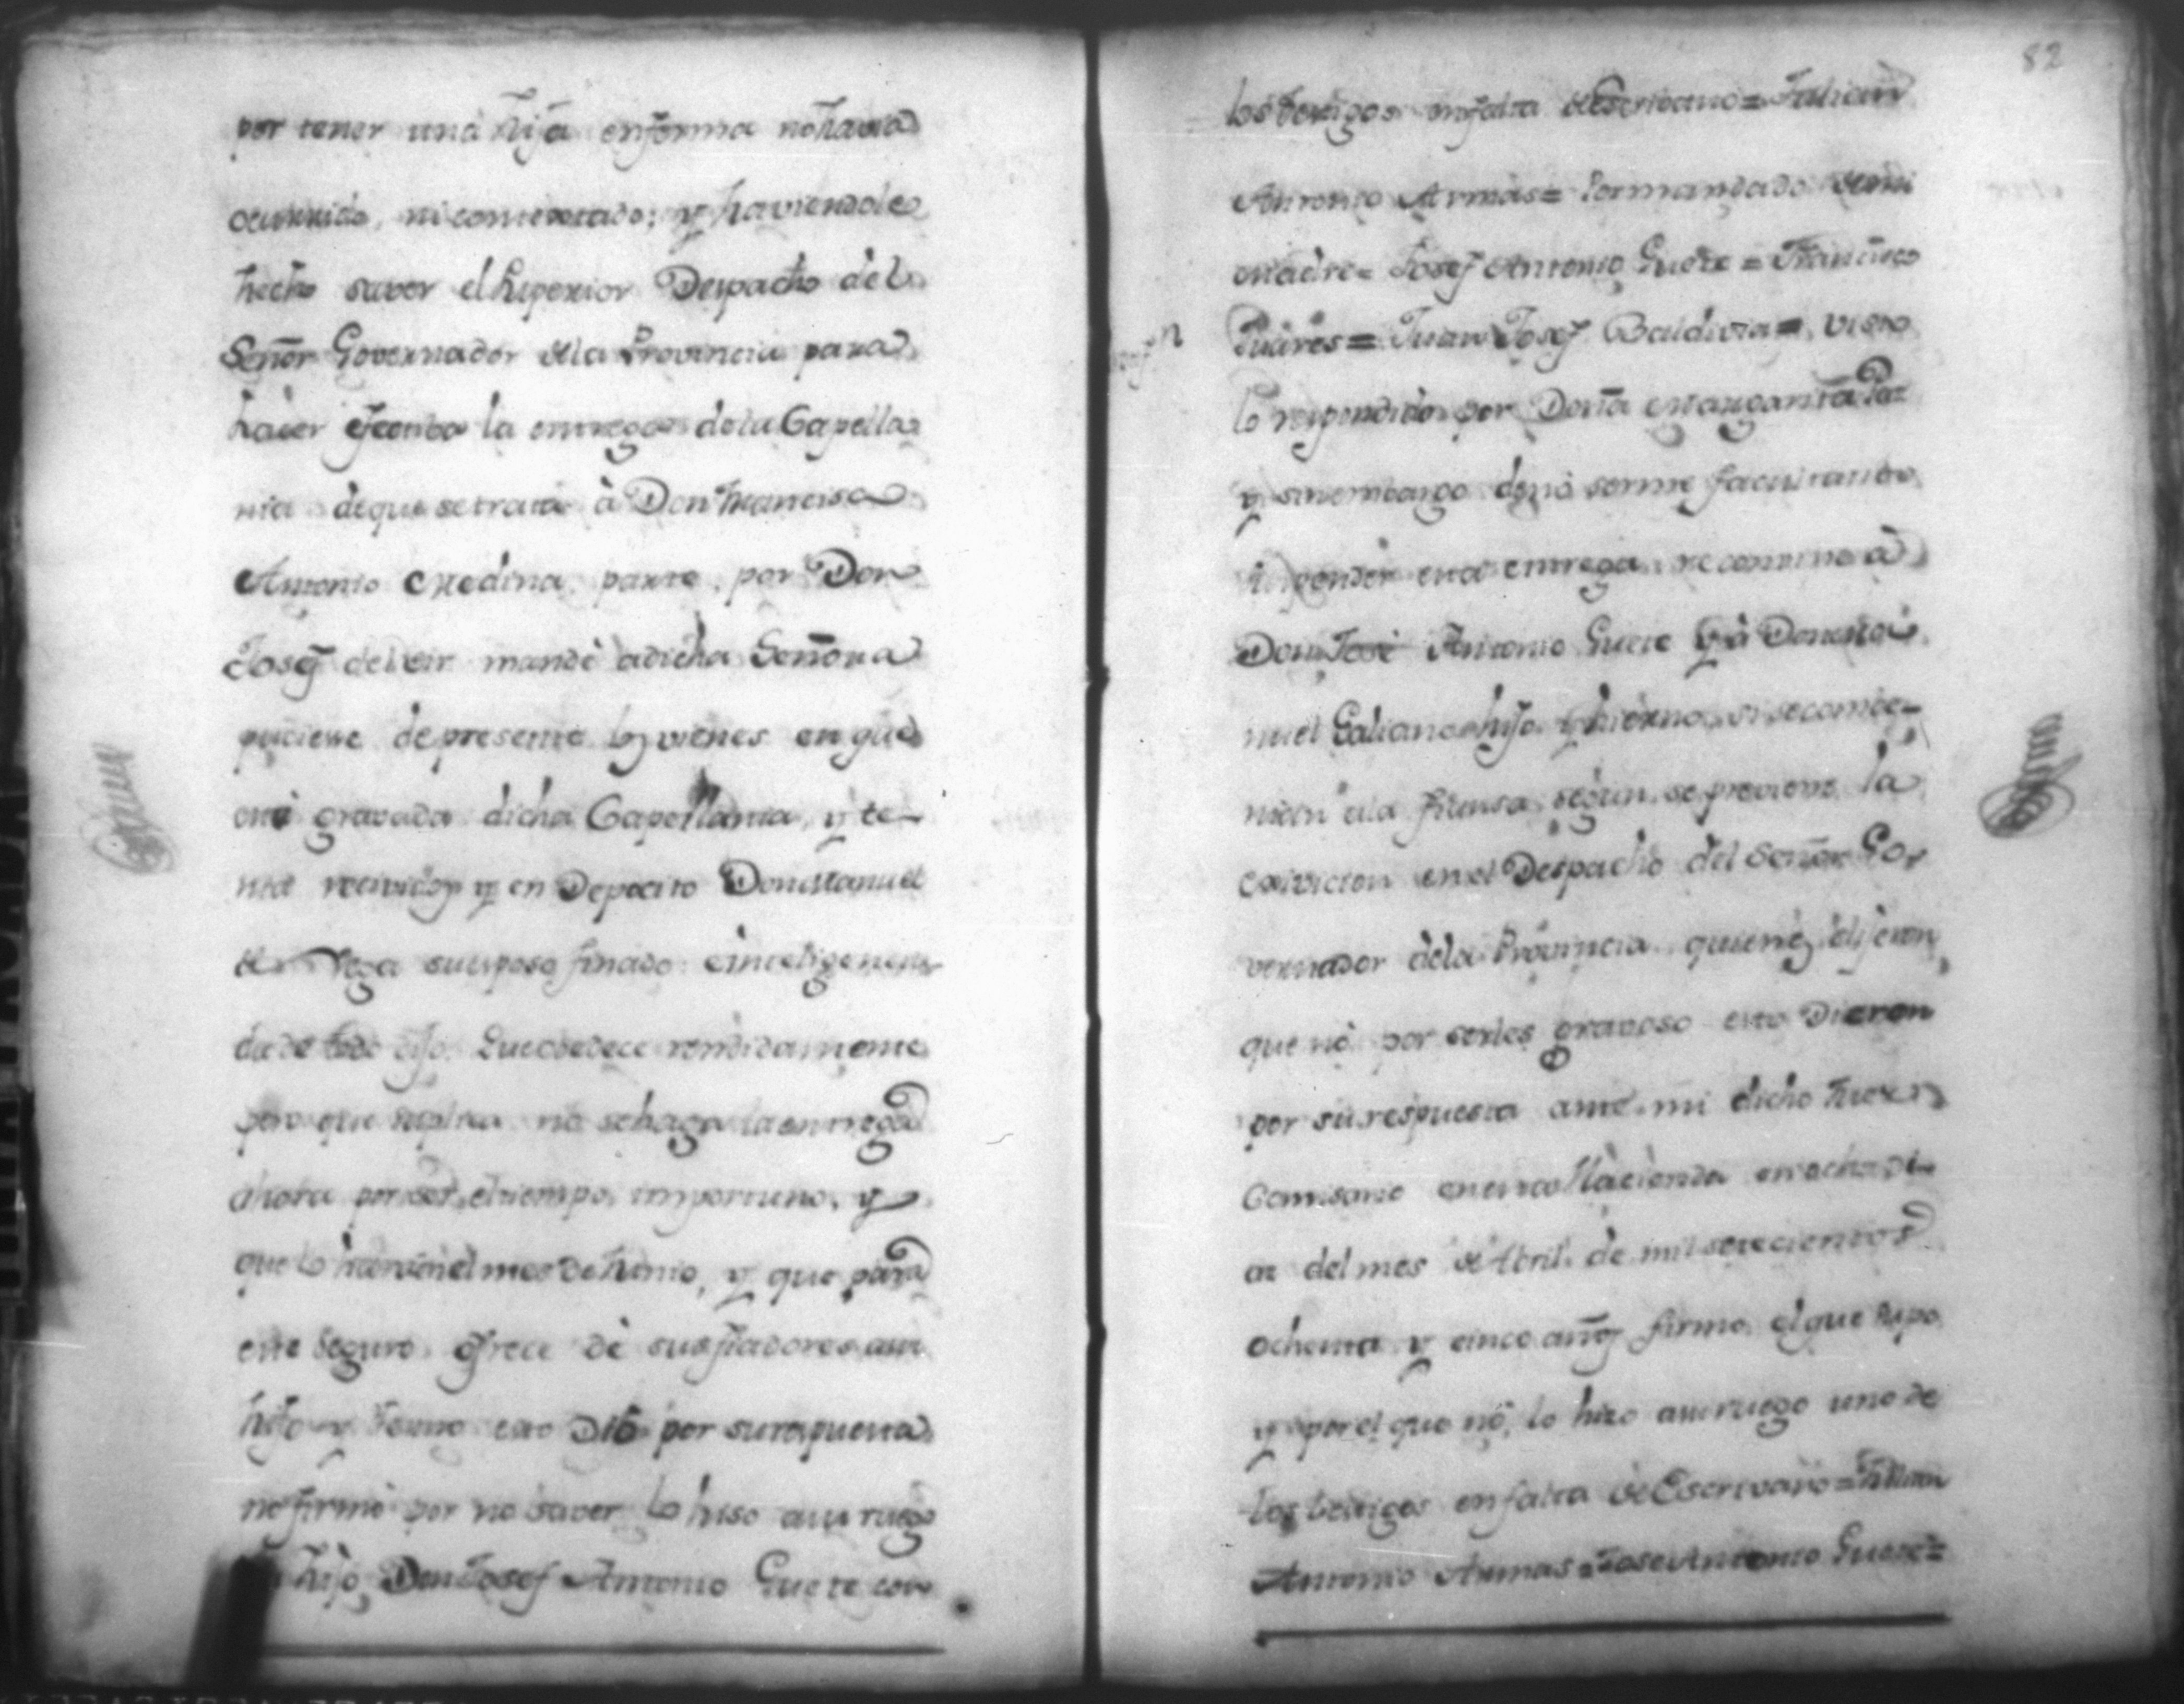 por tener una hija enferma no havia
ocurrido, ni contestado; y haviendole
hecho saver el Superior Despacho del
Señor Governador de la Provincia para
hacer efectiva la entrega de la Capella
nia de que se trata à Don Francisco
Antonio Medina parte, por Don
Josef del Cir mandè a dicha Señora
puciese de presente los vienes en que
está gravada dicha Capellania, y te-
nia recividos y en Depocito Don Manuel
de Vega su esposo finado: è inteligencia
da de todo dijo. Que obedece rendidamente
pero que suplica no se haga la entrega
ahora por ser el tiempo importuno, y
que lo harà en el mes de Junio, y que para
este seguro ofrece de sus fiadores a su
hijo y Yerno esto Dió por su respuesta
no firmò por no saver lo hiso a su ruego
hijo Don Josef Antonio Guete con
82
los testigos en falta de Escrivano = Julian
Antonio Armas = Por mandado de mi
Madre = Josef Antonio Guete = Francisco
Suares = Juan Josef Baldivia = Visto
lo respondido por Doña Margarita Paz
y sin embargo de no serme facultativo
suspender esta entrega reconvine à
Don José Antonio Guete y à Don Ma
nuel Galiano hijo y hierno, si se conve-
nian a la fiansa segun se previene la
exivicion en el Despacho del Señor Go-
vernador de la Provincia quienes dijeron
que no por serles gravoso esto Dieron
por su respuesta ante mi dicho Juez
Comisario en esta Hacienda en ocho di-
as del mes de Abril de mil setecientos
ochenta y cinco años firmo el que supo
y por el que nò, lo hizo a su ruego uno de
los testigos en falta de Escrivano = Julian
Antonio Armas = Jose Antonio Guete =